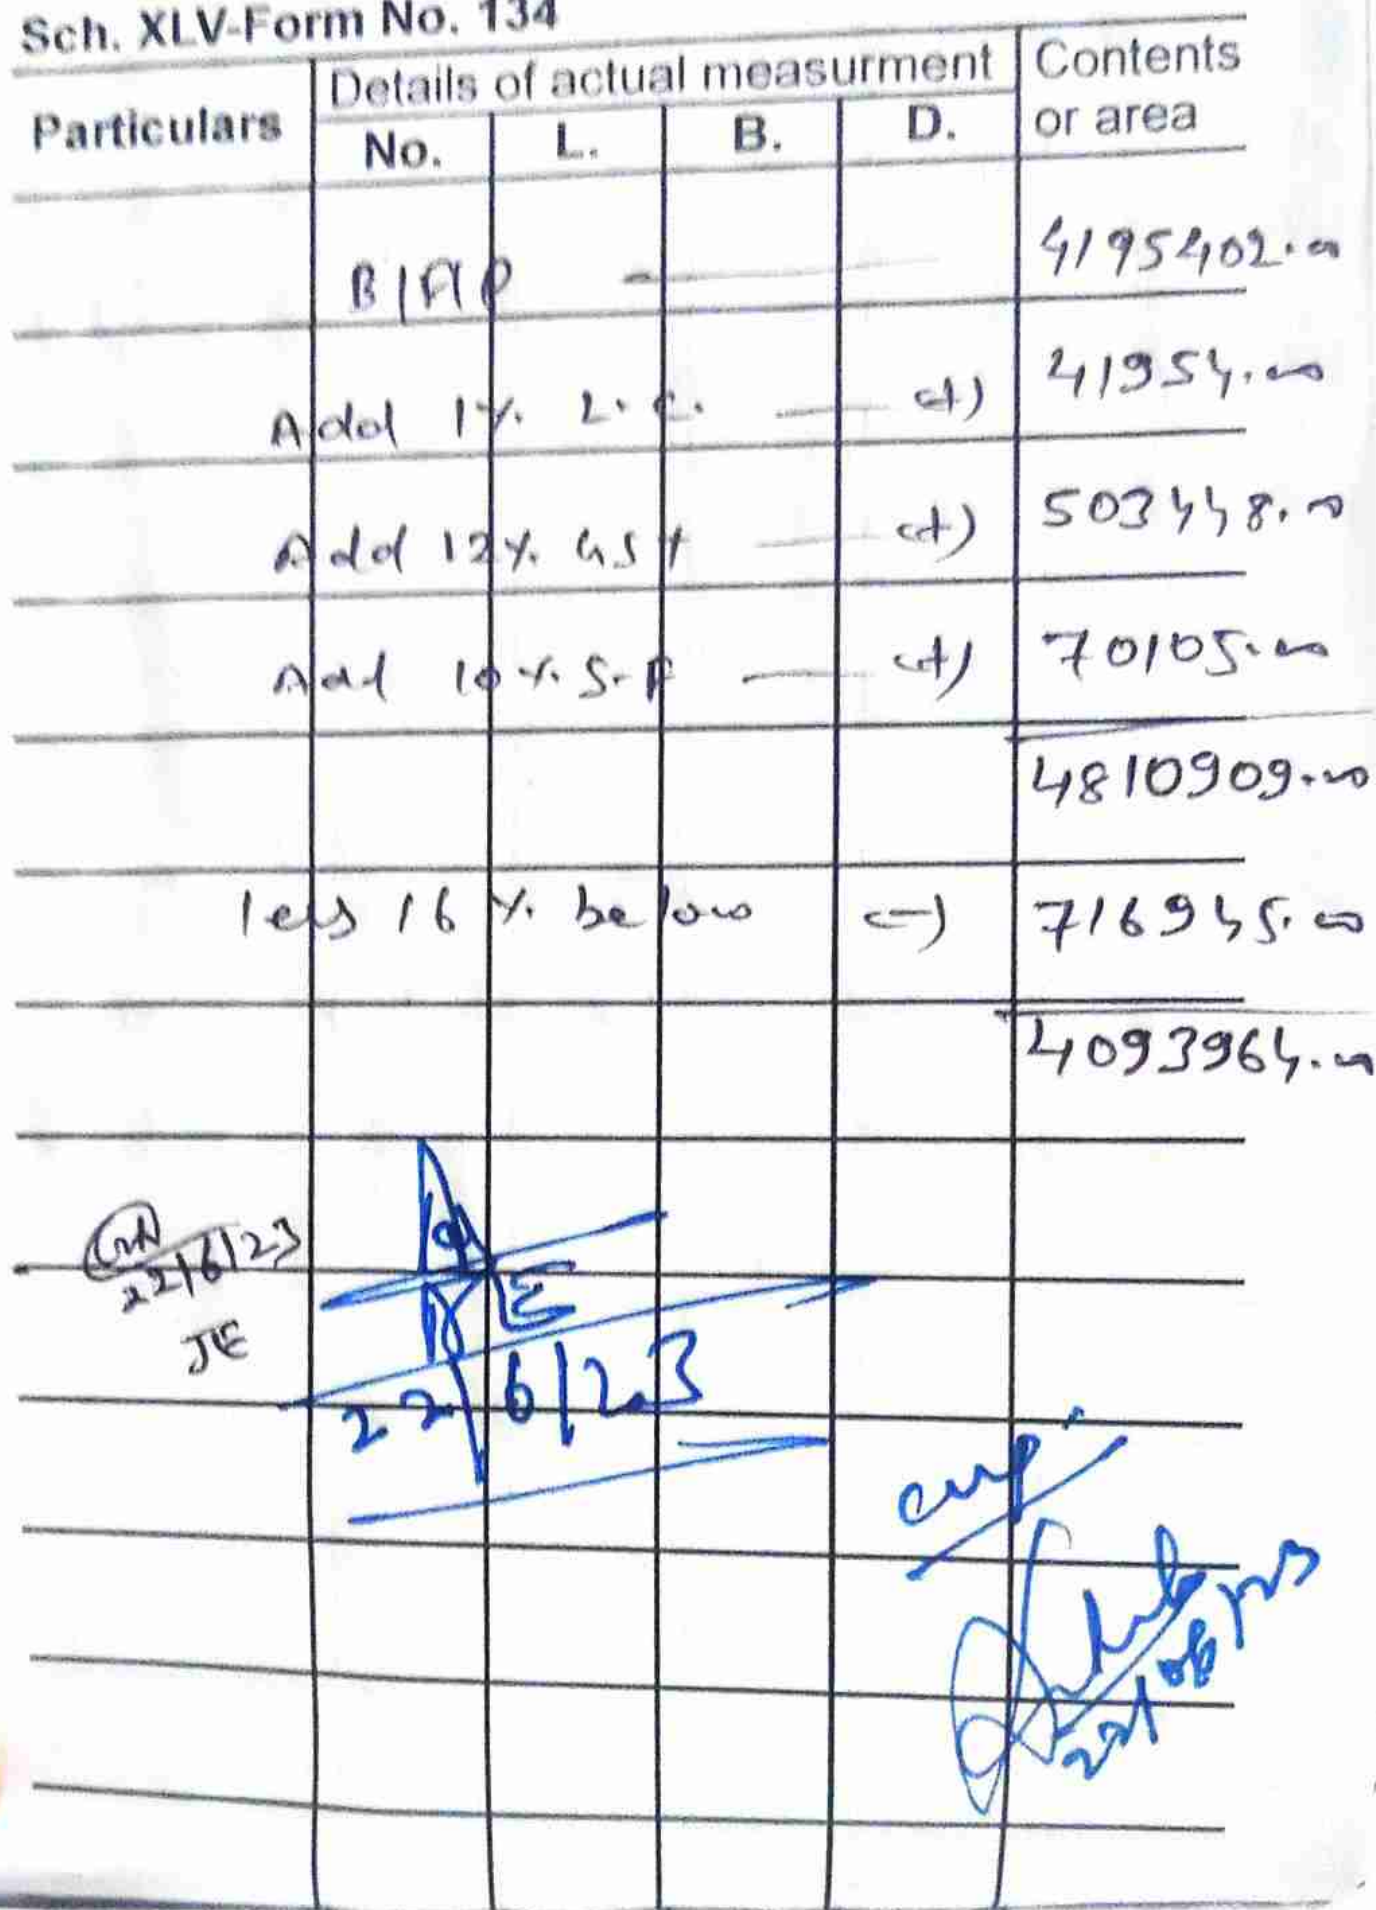 Sch. XLV-Form No. 134
Particulars Details of actual measurment Contents or area
No. L. B. D.
B/F/P — 4195402.00
Add 1% L.C. — (+) 41954.00
Add 12% GST — (+) 503448.00
Add 10% S.F — (+) 70105.00
4810909.00
less 16% below (-) 716945.00
4093964.00
22/6/23
JE
AE
22/6/23
22/06/23